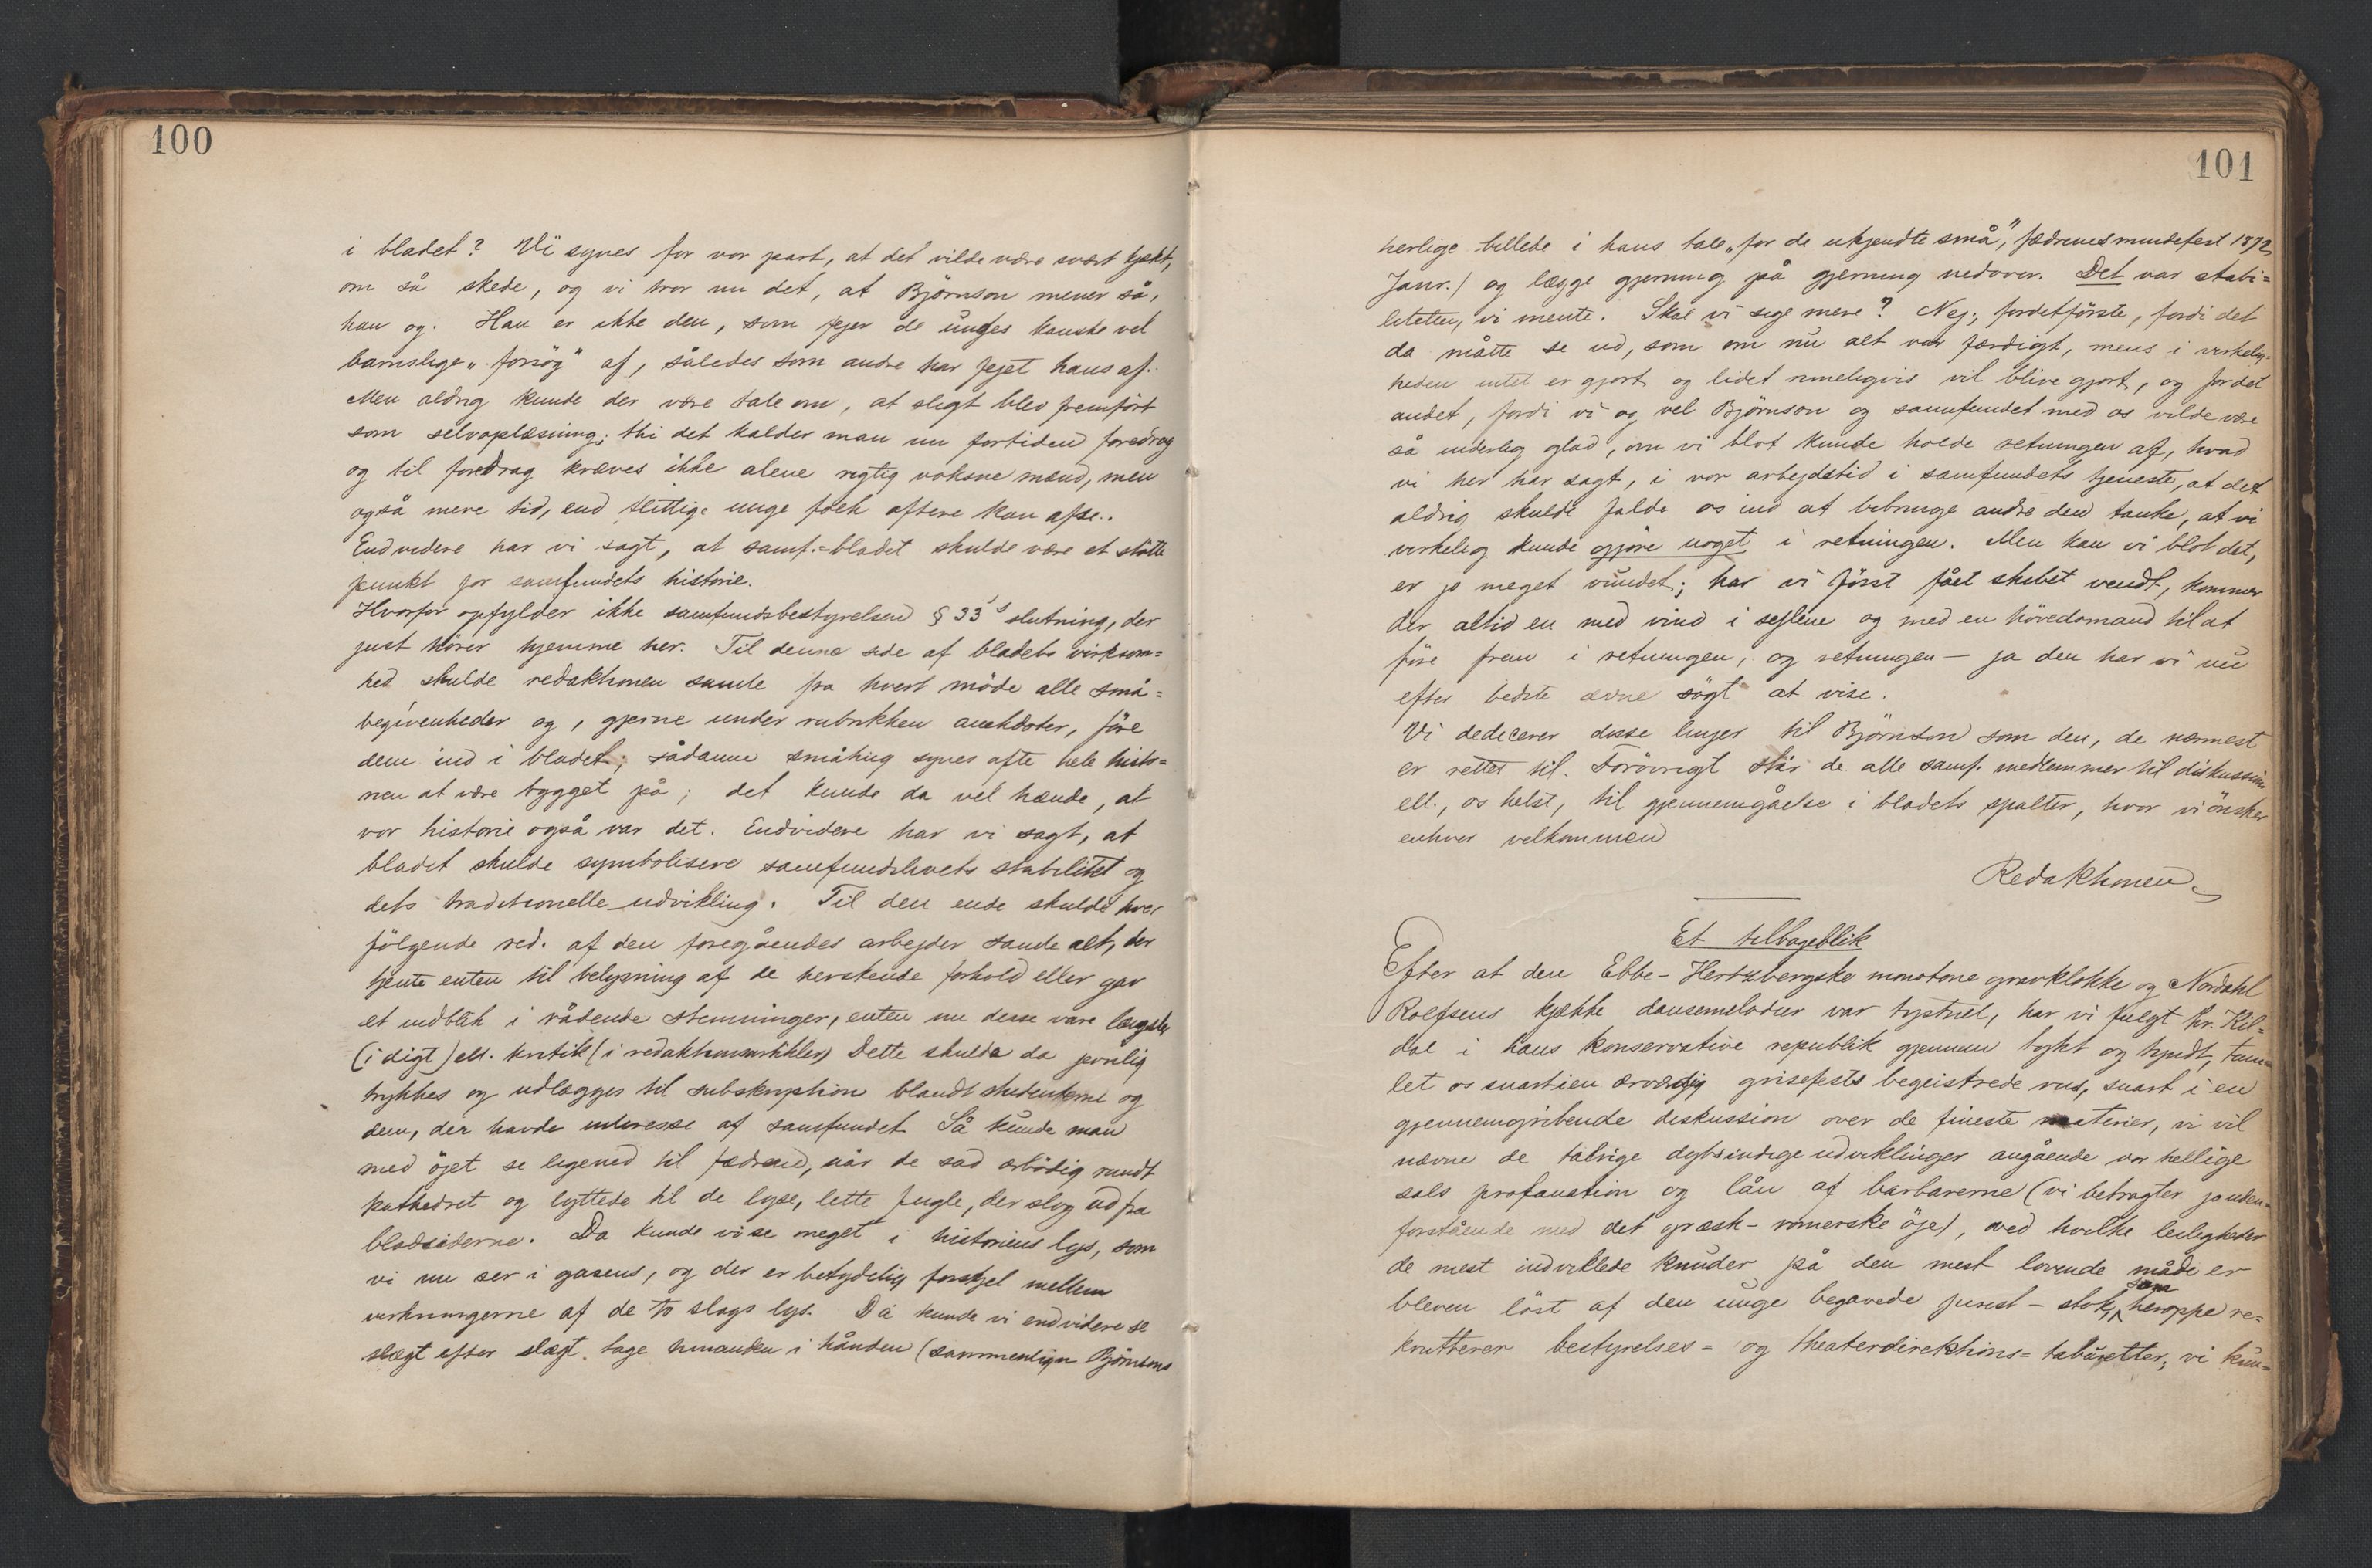 100
i bladet? Vi synes for vor part, at det vilde være svært kjækt,
om så skede, og vi tror nu det, at Björnson mener så,
han og. Han er ikke den, som fejer de unges kanske vel
barnslige „forsög" af, således som andre har fejet hans af.
Men aldrig kunde der være tale om, at sligt blev fremfört
som selvoplæsning; thi det kalder man nu fortiden foredrag
og til foredrag kræves ikke alene rigtig voksne mænd, men
også mere tid, end flittige unge folk oftere kan afse.
Endvidere har vi sagt, at samf.=bladet skulde være et stötte
punkt for samfundets historie.
Hvorfor opfylder ikke samfundsbestyrelsen § 33's slutning, der
just hörer hjemme her. Til denne side af bladets virksom=
hed skulde redaktionen samle fra hvert möde alle små=
begivenheder og, gjerne under rubrikken anekdoter, före
dem ind i bladet; sådanne småting synes ofte hele histo=
rien at være bygget på; det kunde da vel hænde, at
vor historie også var det. Endvidere har vi sagt, at
bladet skulde symbolisere samfundslivets stabilitet og
dets traditionelle udvikling. Til den ende skulde hver
fölgende red. af den foregåendes arbejder samle alt, der
tjente enten til belysning af de herskende forhold eller gav
et indblik i rådende stemninger, enten nu disse vare
(i digt) ell. kritik (i redaktionsartikler) Dette skulde da jevnlig
trykkes og udlægges til subskription blandt studenterne og
dem, der havde interesse af samfundet. Så kunde man
med öjet se ligened til fædrene, når de sad ærbödig rundt
kathedret og lyttede til de lyse, lette fugle, der slog ud fra
bladsiderne. Da kunde vi se meget i historiens lys, som
vi nu ser i gasens, og der er betydelig forskjel mellem
virkningerne af de to slags lys. Da kunde vi endvidere se
slægt efter slægt tage hinanden i hånden (sammenlign Björnsons
101
herlige billede i hans tale „for de ukjendte små", fædrenes mindefest 1872,
Janr.) og lægge gjerning på gjerning nedover. Det var stabi=
liteten, vi mente. Skal vi sige mere? Nej; fordetförste, fordi det
da måtte se ud, som om nu alt var færdigt, mens i virkelig=
heden intet er gjort og lidet rimeligvis vil blive gjort, og for det
andet, fordi vi og vel Björnson og samfundet med os vilde være
så inderlig glad, om vi blot kunde holde retningen af, hvad
vi her har sagt, i vor arbejdstid i samfundets tjeneste, at det
aldrig skulde falde os ind at bibringe andre den tanke, at vi
virkelig kunde gjöre noget i retningen. Men kan vi blot det,
er jo meget vundet; har vi först fået skibet vendt, kommer
der altid en med vind i sejlene og med en hövedsmand til at
före frem i retningen, og retningen — ja den har vi nu
efter bedste ævne sögt at vise.
Vi dedicerer disse linjer til Björnson som den, de nærmest
er rettet til. Forövrigt står de alle samf. medlemmer til diskussion
ell., os helst, til gjennemgåelse i bladets spalter, hvor vi önsker
enhver velkommen
Redaktionen
Et tilbageblik
Efter at den Ebbe-Hertzbergske monotone gravklokke og Nordahl
Rolfsens kjække dansemelodier var hystnet, har vi fulgt hr. Kil=
dal i hans konservative republik gjennem tykt og tyndt, tum=
let os snart i en ærværdig grisefests begeistrede rus, snart i en
gjennemgribende diskussion over de fineste materier, vi vil
nævne de talrige dybsindige udviklinger angående vor hellige
sals profanation og lån af barbarerne (vi betragter jo uden=
forstående med det græsk-romerske öje), ved hvilke leiligheder
de mest indviklede knuder på den mest lovende måde er
bleven löst af den unge begavede jurist-stok, som heroppe re=
krutterer bestyrelses= og theaterdirektions=tabüretter; vi kun=